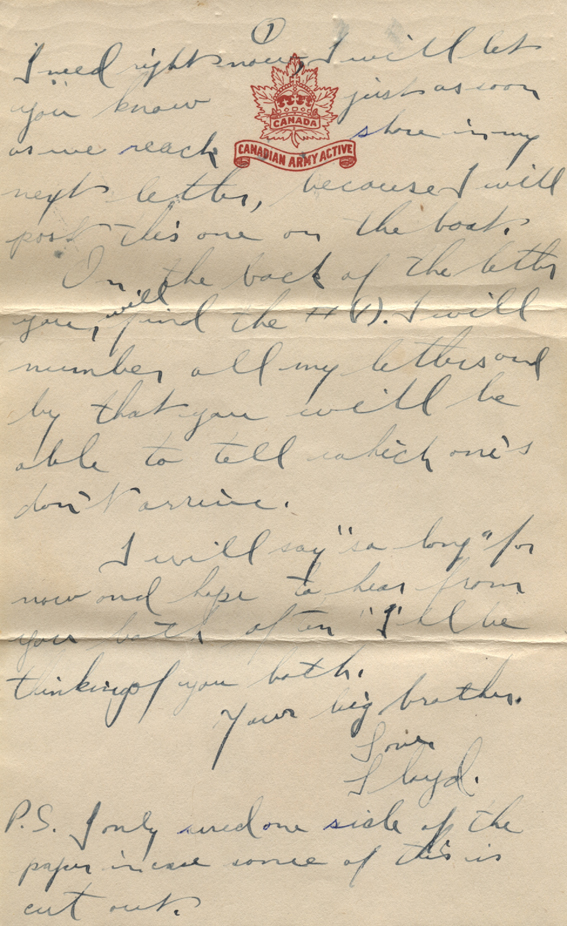 ①
I need right now, I will let
you know just as soon
CANADA
CANADIAN ARMY ACTIVE
as we reach shore in my
next letter, because I will
post this one on the boat.
On the back of the letter
you, will find the # (1). I will
number all my letters and
by that you will be
able to tell which one's
don't arrive.
I will say "so long" for
now and hope to hear from
you both often "I'll be
thinking of you both.
Your big brother.
Love
Lloyd.
P.S. I only used one side of the
paper in case some of this is
cut out.